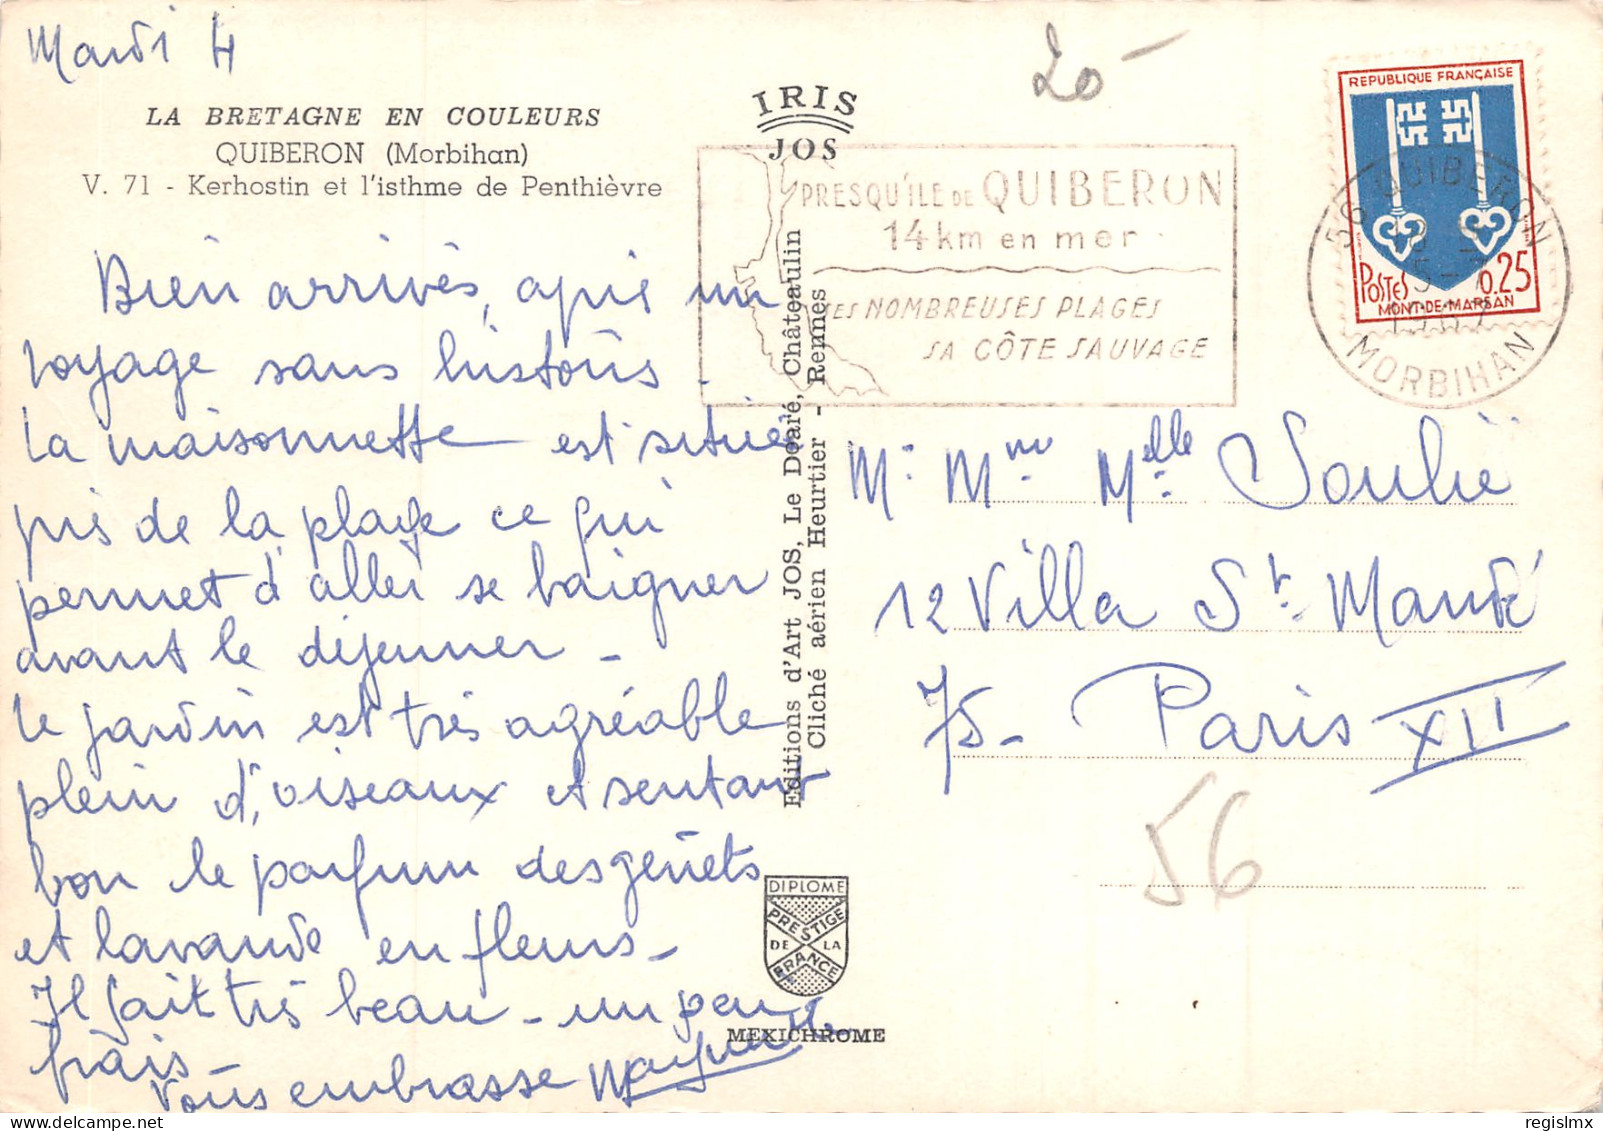 Mardi 4
LA BRETAGNE EN COULEURS
QUIBERON (Morbihan)
V. 71 - Kerhostin et l'isthme de Penthièvre
Bien arrivés, après un
voyage sans histoires -
La maisonnette est située
près de la plage ce qui
permet d'aller se baigner
avant le déjeuner -
Le jardin est très agréable
plein d'oiseaux et sentant
bon le parfum des genêts
et lavande en fleurs -
Il fait très beau - un peu
frais -
Vous embrasse
IRIS
JOS
Editions d'Art JOS, Le Doaré, Châteaulin
Cliché aérien Heurtier - Rennes
DIPLOME
PRESTIGE
DE LA
FRANCE
MEXICHROME
20 -
PRESQU'ÎLE DE QUIBERON
14 km en mer
SES NOMBREUSES PLAGES
SA CÔTE SAUVAGE
REPUBLIQUE FRANÇAISE
POSTES 0,25
MONT-DE-MARSAN
56 QUIBERON
MORBIHAN
Mr Mme Melle Soulié
12 Villa St Mandé
75 - Paris XII
56
regislmx